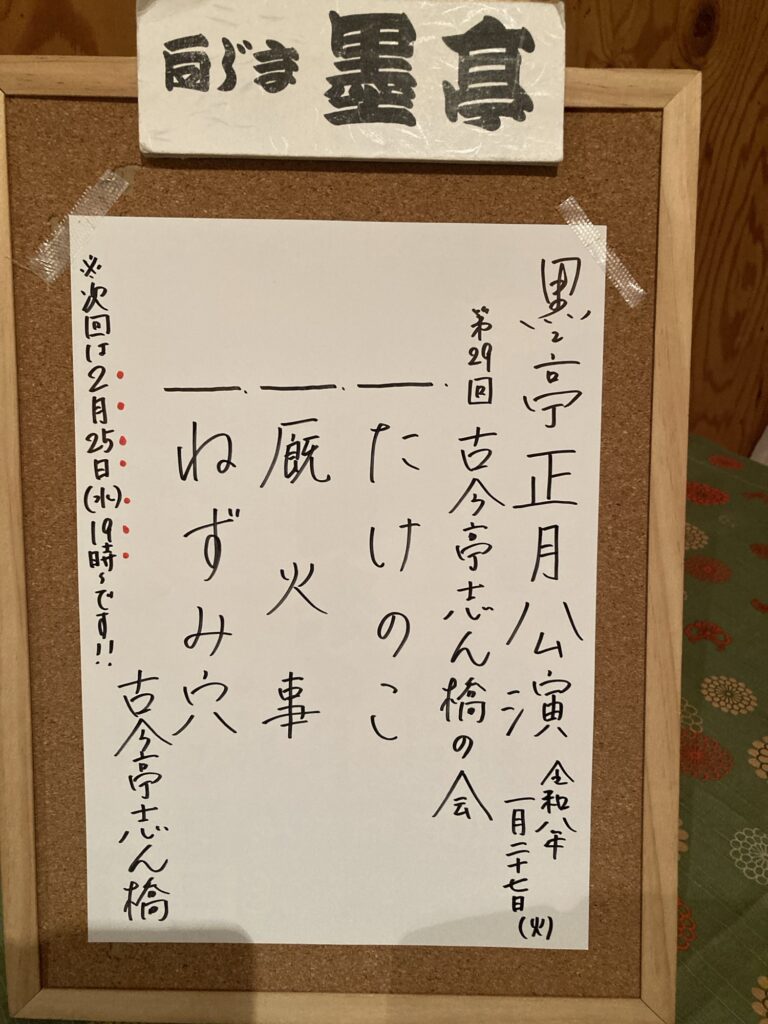 向じま 墨亭
墨亭正月公演
令和八年
一月二十七日(火)
第29回 古今亭志ん橋の会
一、たけのこ
一、厩火事
一、ねずみ穴
古今亭志ん橋
※次回は2月25日(水)19時〜です!!